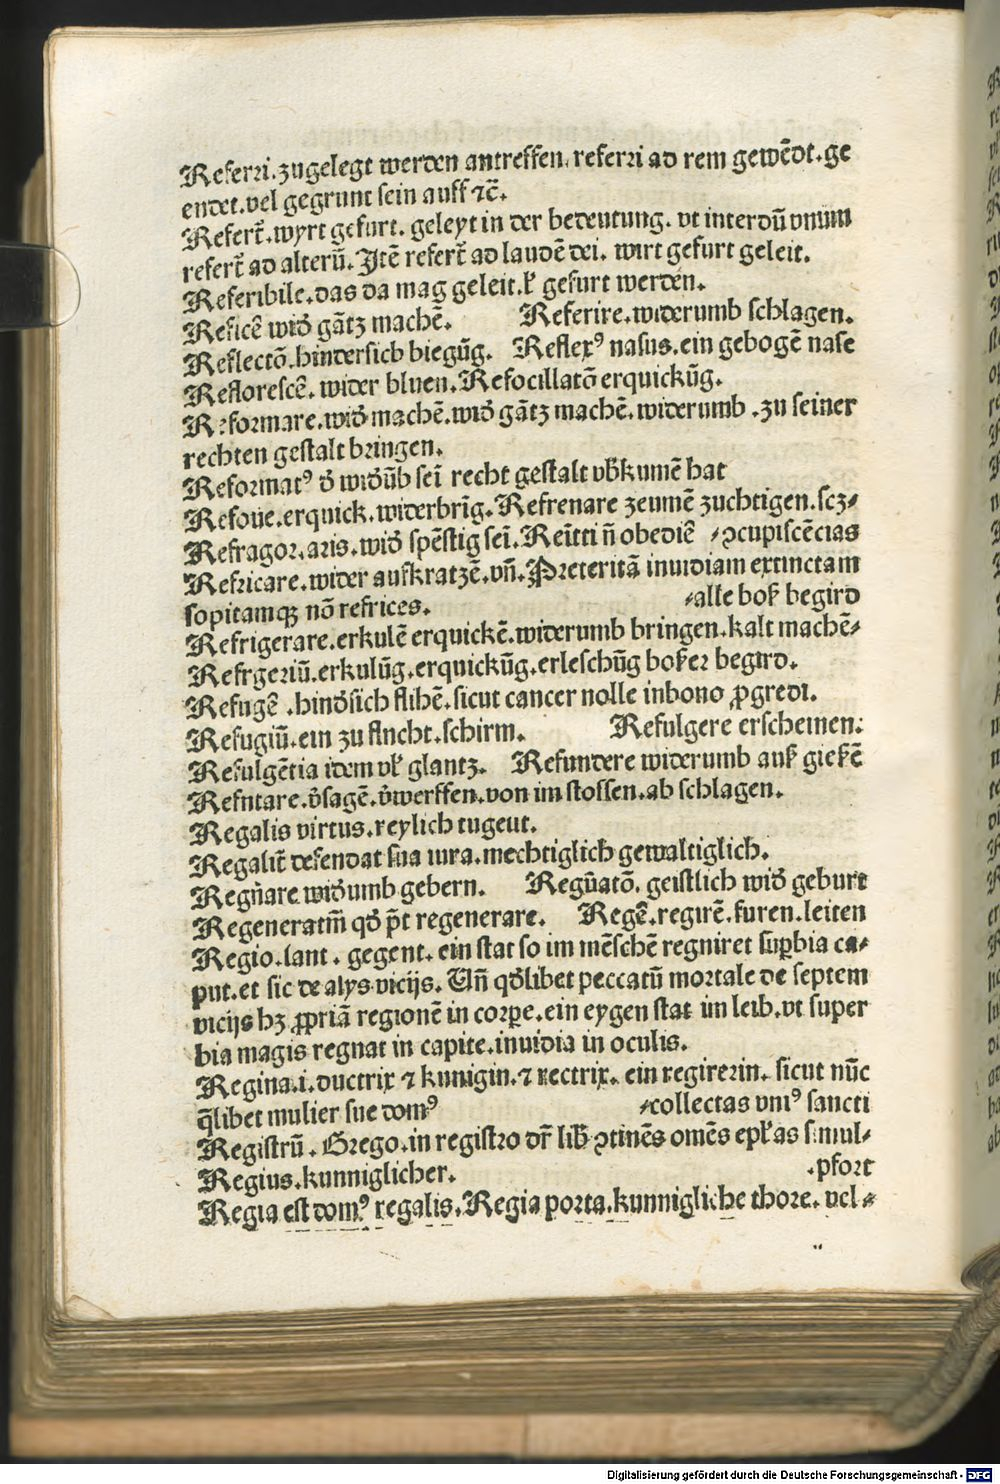 Referri.zugelegt werden antreffen.referri ad rem gewēdt.ge
endet.vel gegrunt sein auff ⁊c̄.
Refert̄.wyrt gefurt.geleyt in der bedeutung.vt interdū vnum
refert̄ ad alterū.Jtē refert̄ ad laudē dei.wirt gefurt geleit.
Referibile.das da mag geleit.ꝉ gefurt werden.
Reficē wid᷑ gātz machē. Referire.widerumb schlagen.
Reflectō.hindersich biegūg. Reflexꝰ nasus.ein gebogē nase
Reflorescē.wider bluen.Refocillatō erquickūg.
Reformare.wid᷑ machē.wid᷑ gātz machē.widerumb.zu seiner
rechten gestalt bringen.
Reformatꝰ d᷑ wid᷑ūb sei᷑ recht gestalt vb᷑kumē hat
Refoue.erquick.widerbrīg.Refrenare zeumē zuchtigen.scz⸗
Refragor.aris.wid᷑ spēstig sei᷑.Reītti n̄ obediē ⸗ꝯcupiscēcias
Refricare.wider aufkratzē.vn̄.Preteritā inuidiam extinctam
sopitamqꝫ nō refrices. ⸗alle boß begird
Refrigerare.erkulē erquickē.widerumb bringen.kalt machē⸗
Refrgeriū.erkulūg.erquickūg.erleschūg boßer begird.
Refugē.hind᷑sich flihē.sicut cancer nolle inbono ꝓgredi.
Refugiū.ein zu flncht.schirm. Refulgere erscheinen:
Refulgētia idem vꝉ glantz. Refundere widerumb auß gießē
Refntare.v᷑sagē.v᷑werffen.von im stossen.ab schlagen.
Regalis virtus.reylich tugeut.
Regalit̄ defendat sua iura.mechtiglich gewaltiglich.
Regn̄are wid᷑umb gebern. Regn̄atō.geistlich wid᷑ geburt
Regeneratm̄ qd᷑ p̄t regenerare. Regē.regirē.furen.leiten
Regio.lant.gegent.ein stat so im mēschē regniret suꝑbia ca⸗
put.et sic de alys vicijs.Vn̄ qd᷑libet peccatū mortale de septem
vicijs hꝫ ꝓpriā regionē in corꝑe.ein eygen stat im leib.vt super
bia magis regnat in capite.inuidia in oculis.
Regina.i.ductrix ⁊ kunigin.⁊ rectrix.ein regirerin.sicut nūc
q̄libet mulier sue domꝰ ⸗collectas vniꝰ sancti
Registrū.Grego.in registro dr̄ lib᷑ ꝯtinēs omēs epꝉas simul⸗
Regius.kunniglicher. .pfort
Regia est domꝰ regalis.Regia porta.kunnigliche thore.vel⸗
Digitalisierung gefördert durch die Deutsche Forschungsgemeinschaft - DFG